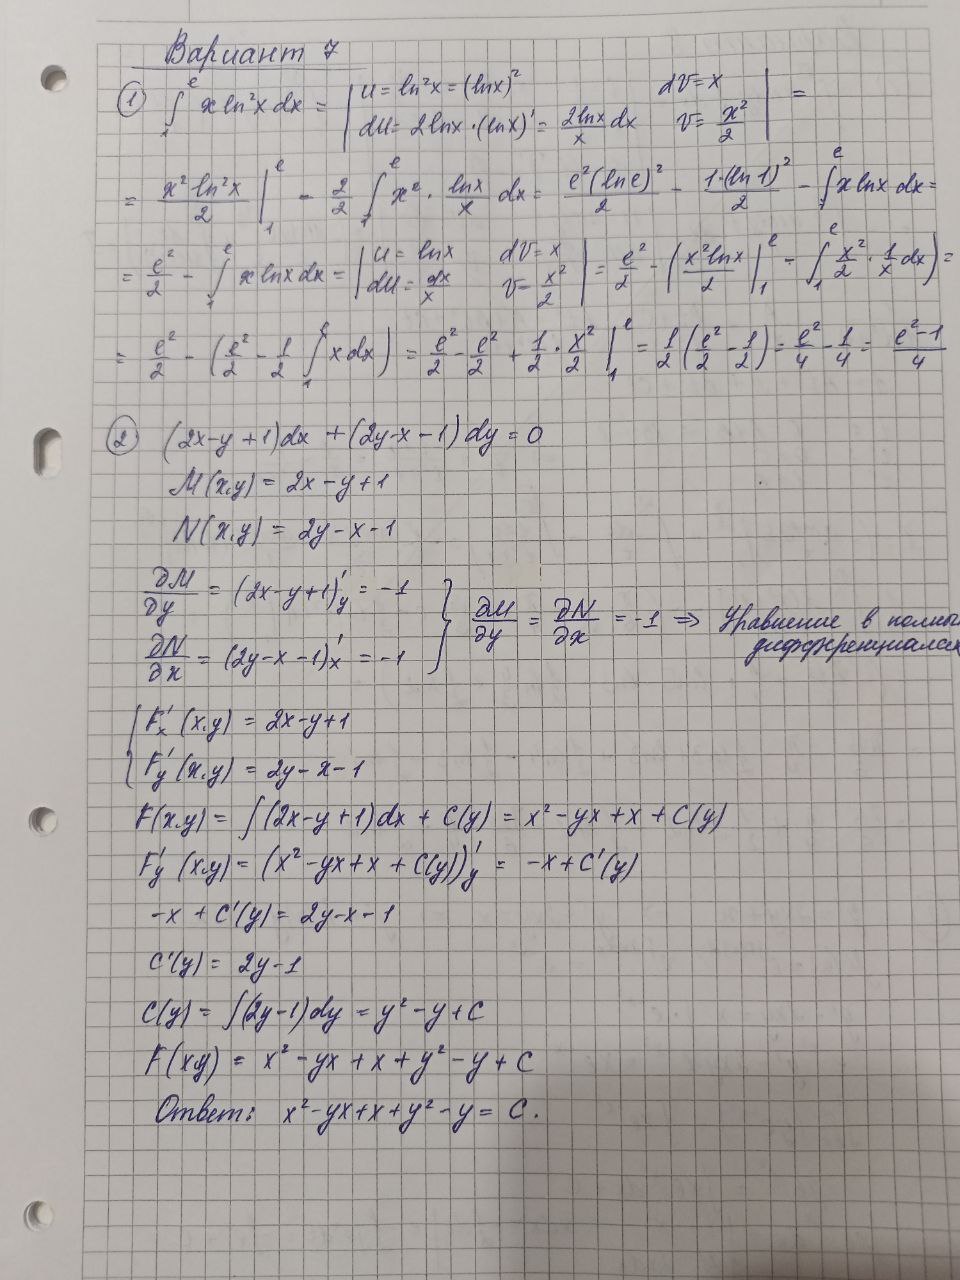 Вариант 7
① ∫₁ᵉ x ln²x dx = | u = ln²x = (lnx)² dV = x
du = 2lnx · (lnx)' = 2lnx/x dx V = x²/2 | =
= x² ln²x/2 |₁ᵉ - 2/2 ∫₁ᵉ x² · lnx/x dx = e²(lne)²/2 - 1·(ln1)²/2 - ∫₁ᵉ x lnx dx =
= e²/2 - ∫₁ᵉ x lnx dx = | u = lnx dV = x
du = dx/x V = x²/2 | = e²/2 - (x² lnx/2 |₁ᵉ - ∫₁ᵉ x²/2 · 1/x dx) =
= e²/2 - (e²/2 - 1/2 ∫₁ᵉ x dx) = e²/2 - e²/2 + 1/2 · x²/2 |₁ᵉ = 1/2 (e²/2 - 1/2) = e²/4 - 1/4 = e²-1/4
② (2x-y+1)dx + (2y-x-1)dy = 0
M(x,y) = 2x-y+1
N(x,y) = 2y-x-1
∂M/∂y = (2x-y+1)'y = -1
∂N/∂x = (2y-x-1)'x = -1 } ∂M/∂y = ∂N/∂x = -1 ⇒ Уравнение в полных
дифференциалах
{ F'x (x,y) = 2x-y+1
F'y (x,y) = 2y-x-1
F(x,y) = ∫(2x-y+1)dx + C(y) = x² - yx + x + C(y)
F'y (x,y) = (x² - yx + x + C(y))'y = -x + C'(y)
-x + C'(y) = 2y-x-1
C'(y) = 2y-1
C(y) = ∫(2y-1)dy = y² - y + C
F(x,y) = x² - yx + x + y² - y + C
Ответ: x² - yx + x + y² - y = C.